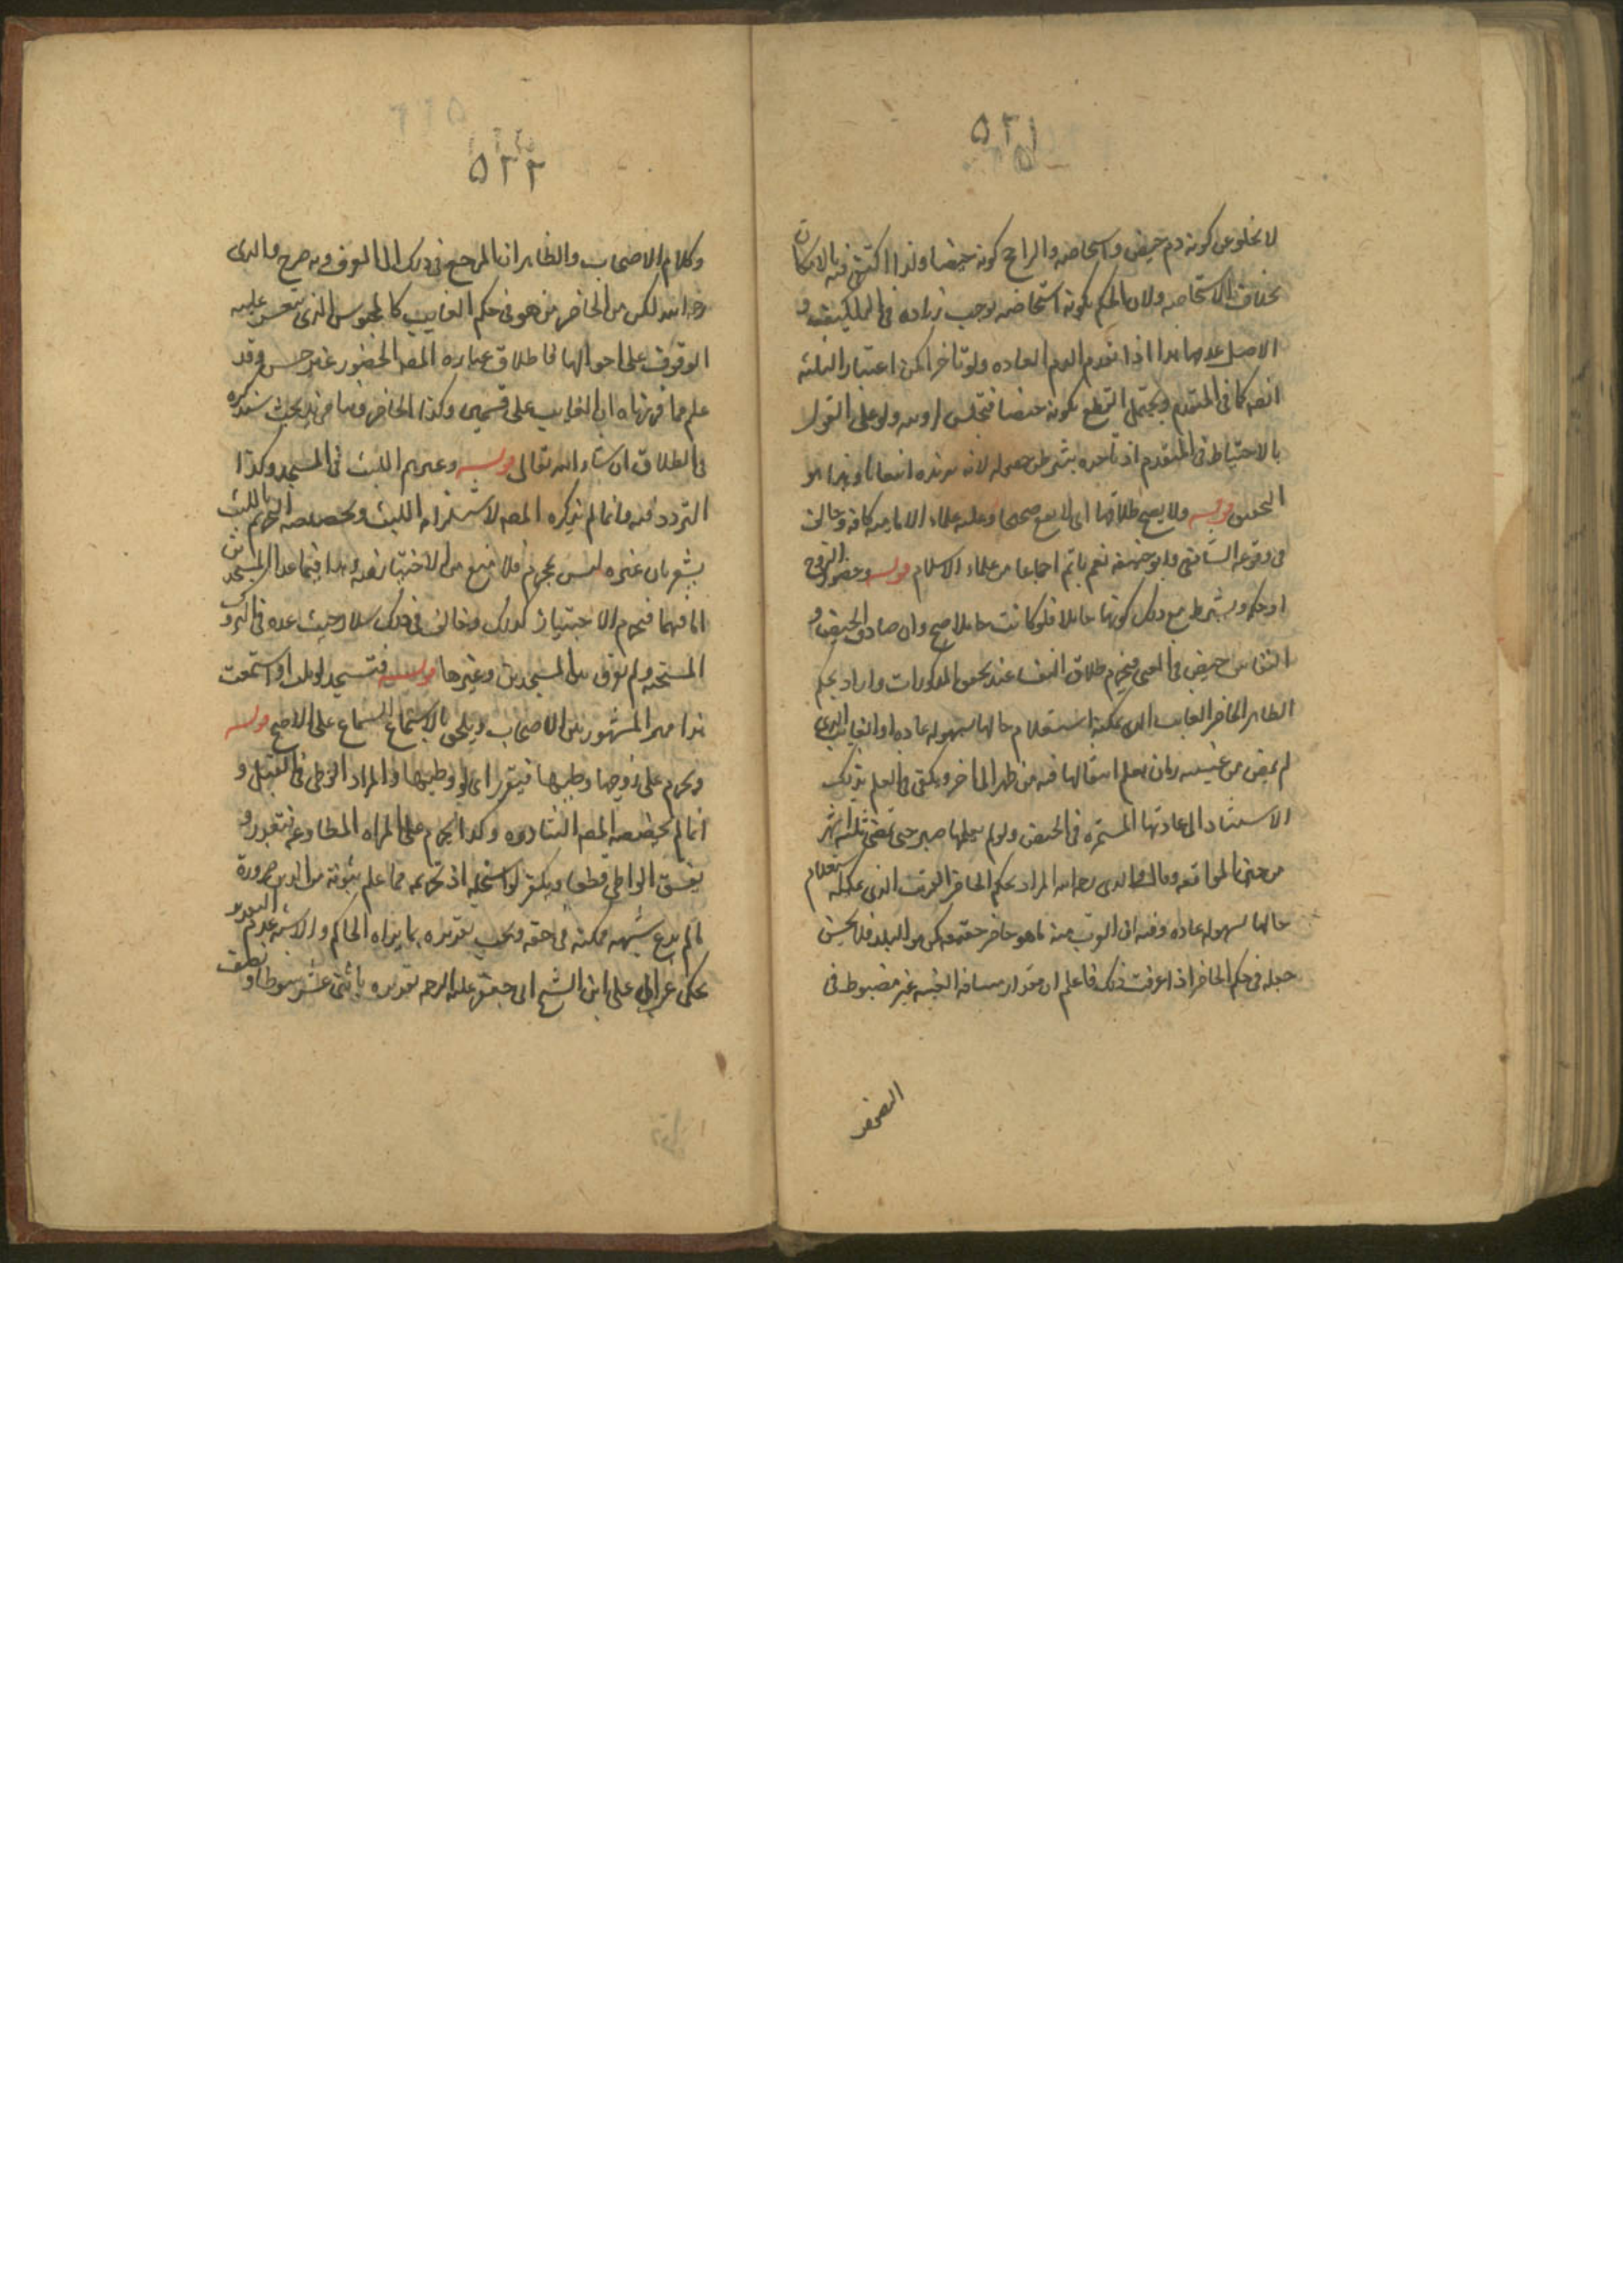 ٥٢١
لا يخلو عن كونه دم حيض واستحاضه والراجح كونه حيضا ولذا اكتفى فيه بالامكان
بخلاف الاستحاضه ولان الحكم بكونه استحاضه يوجب زياده فى التكليف و
الاصل عدمها هذا اذا تقدم الدم العاده ولو تاخر امكن اعتبار الثلثه
ايضا كما فى المتقدم ويحتمل القطع بكونه حيضا فتجلس برويته ولو على القول
بالاحتياط فى المتقدم اذ تاخره بشرط حصوله لانه يزيده انبعاثا وهذا هو
التحقيق قوله ولا يصح طلاقها اى لا يقع صحيحا وعليه علماء الاماميه كافه وخالف
فى وقوعه الشافعى وابو حنيفه نعم ياثم اجماعا من علماء الاسلام قوله وحضور الزوج
او حكمه ويشترط مع ذلك كونها حايلا فلو كانت حاملا صح وان صادف الحيض و
النفاس حيض فى المعنى فيحرم طلاق النفساء عند تحقق المذكورات واراد بحكم
الظاهر الحاضر الغايب الذى يمكنه استعلام حالها بسهوله عاده او الغايب الذى
لم يمض من غيبته زمان يعلم انتقالها فيه من طهر الى اخر ويكفى فى العلم بذلك
الاستناد الى عادتها المستمره فى الحيض ولو لم يعلمها صبر حتى تمضى ثلثه اشهر
من حين المواقعه وقال والدى رحمه الله المراد بحكم الحاضر القريب الذى يمكنه استعلام
حالها بسهوله عاده وفيه ان القريب منه ما هو حاضر حقيقه كمن هو البلد فلا يحسن
جعله فى حكم الحاضر اذا عرفت ذلك فاعلم ان مقدار مسافه الغيبه غير مضبوط فى
٥٢٢
وكلام الاصحاب والظاهر ان المرجع فى ذلك الى العرف وبه صرح والدى
رحمه الله لكن من الحاضر من هو فى حكم الغايب كالمحبوس الذى يتعسر عليه
الوقوف على احوالها فاطلاق عباره المصه الحضور غير حسن وقد
علم مما قررناه ان الغايب على قسمين وكذا الحاضر وهنا مزيد بحث سنذكره
فى الطلاق ان شاء الله تعالى قوله ويحرم اللبث فى المسجد وكذا
التردد فيه وانما لم يذكره المصه لاستلزامه اللبث وتخصيصه التحريم باللبث
يشعر بان غيره ليس بمحرم فلا منع من الاجتياز فيه وهذا فيما عدا المسجدين
اما فيهما فيحرم الاجتياز كذلك وخالف فى ذلك سلار حيث عده فى التروك
المستحبه ولم يفرق بين المسجدين وغيرها قوله فتسجد لو تلت او استمعت
هذا هو المشهور بين الاصحاب ويلحق بالاستماع السماع على الاصح قوله
ويحرم على زوجها وطيها فيعزر اى لو وطيها والمراد الوطى فى القبل و
انما لم يخصصه المصه لتبادره وكذا يحرم على المراه المطاوعه فتعزر و
يفسق الواطى قطعا ويكفر لو استحله اذ تحريمه مما علم ثبوته من الدين ضرورة
ما لم يدع شبهه ممكنه فى حقه ويجب تعزيره بما يراه الحاكم والاشبه عدم التقدير
يحكى عن ابى على ابن الشيخ ابى جعفر عليه الرحمه تعزيره باثنى عشر سوطا ونصف